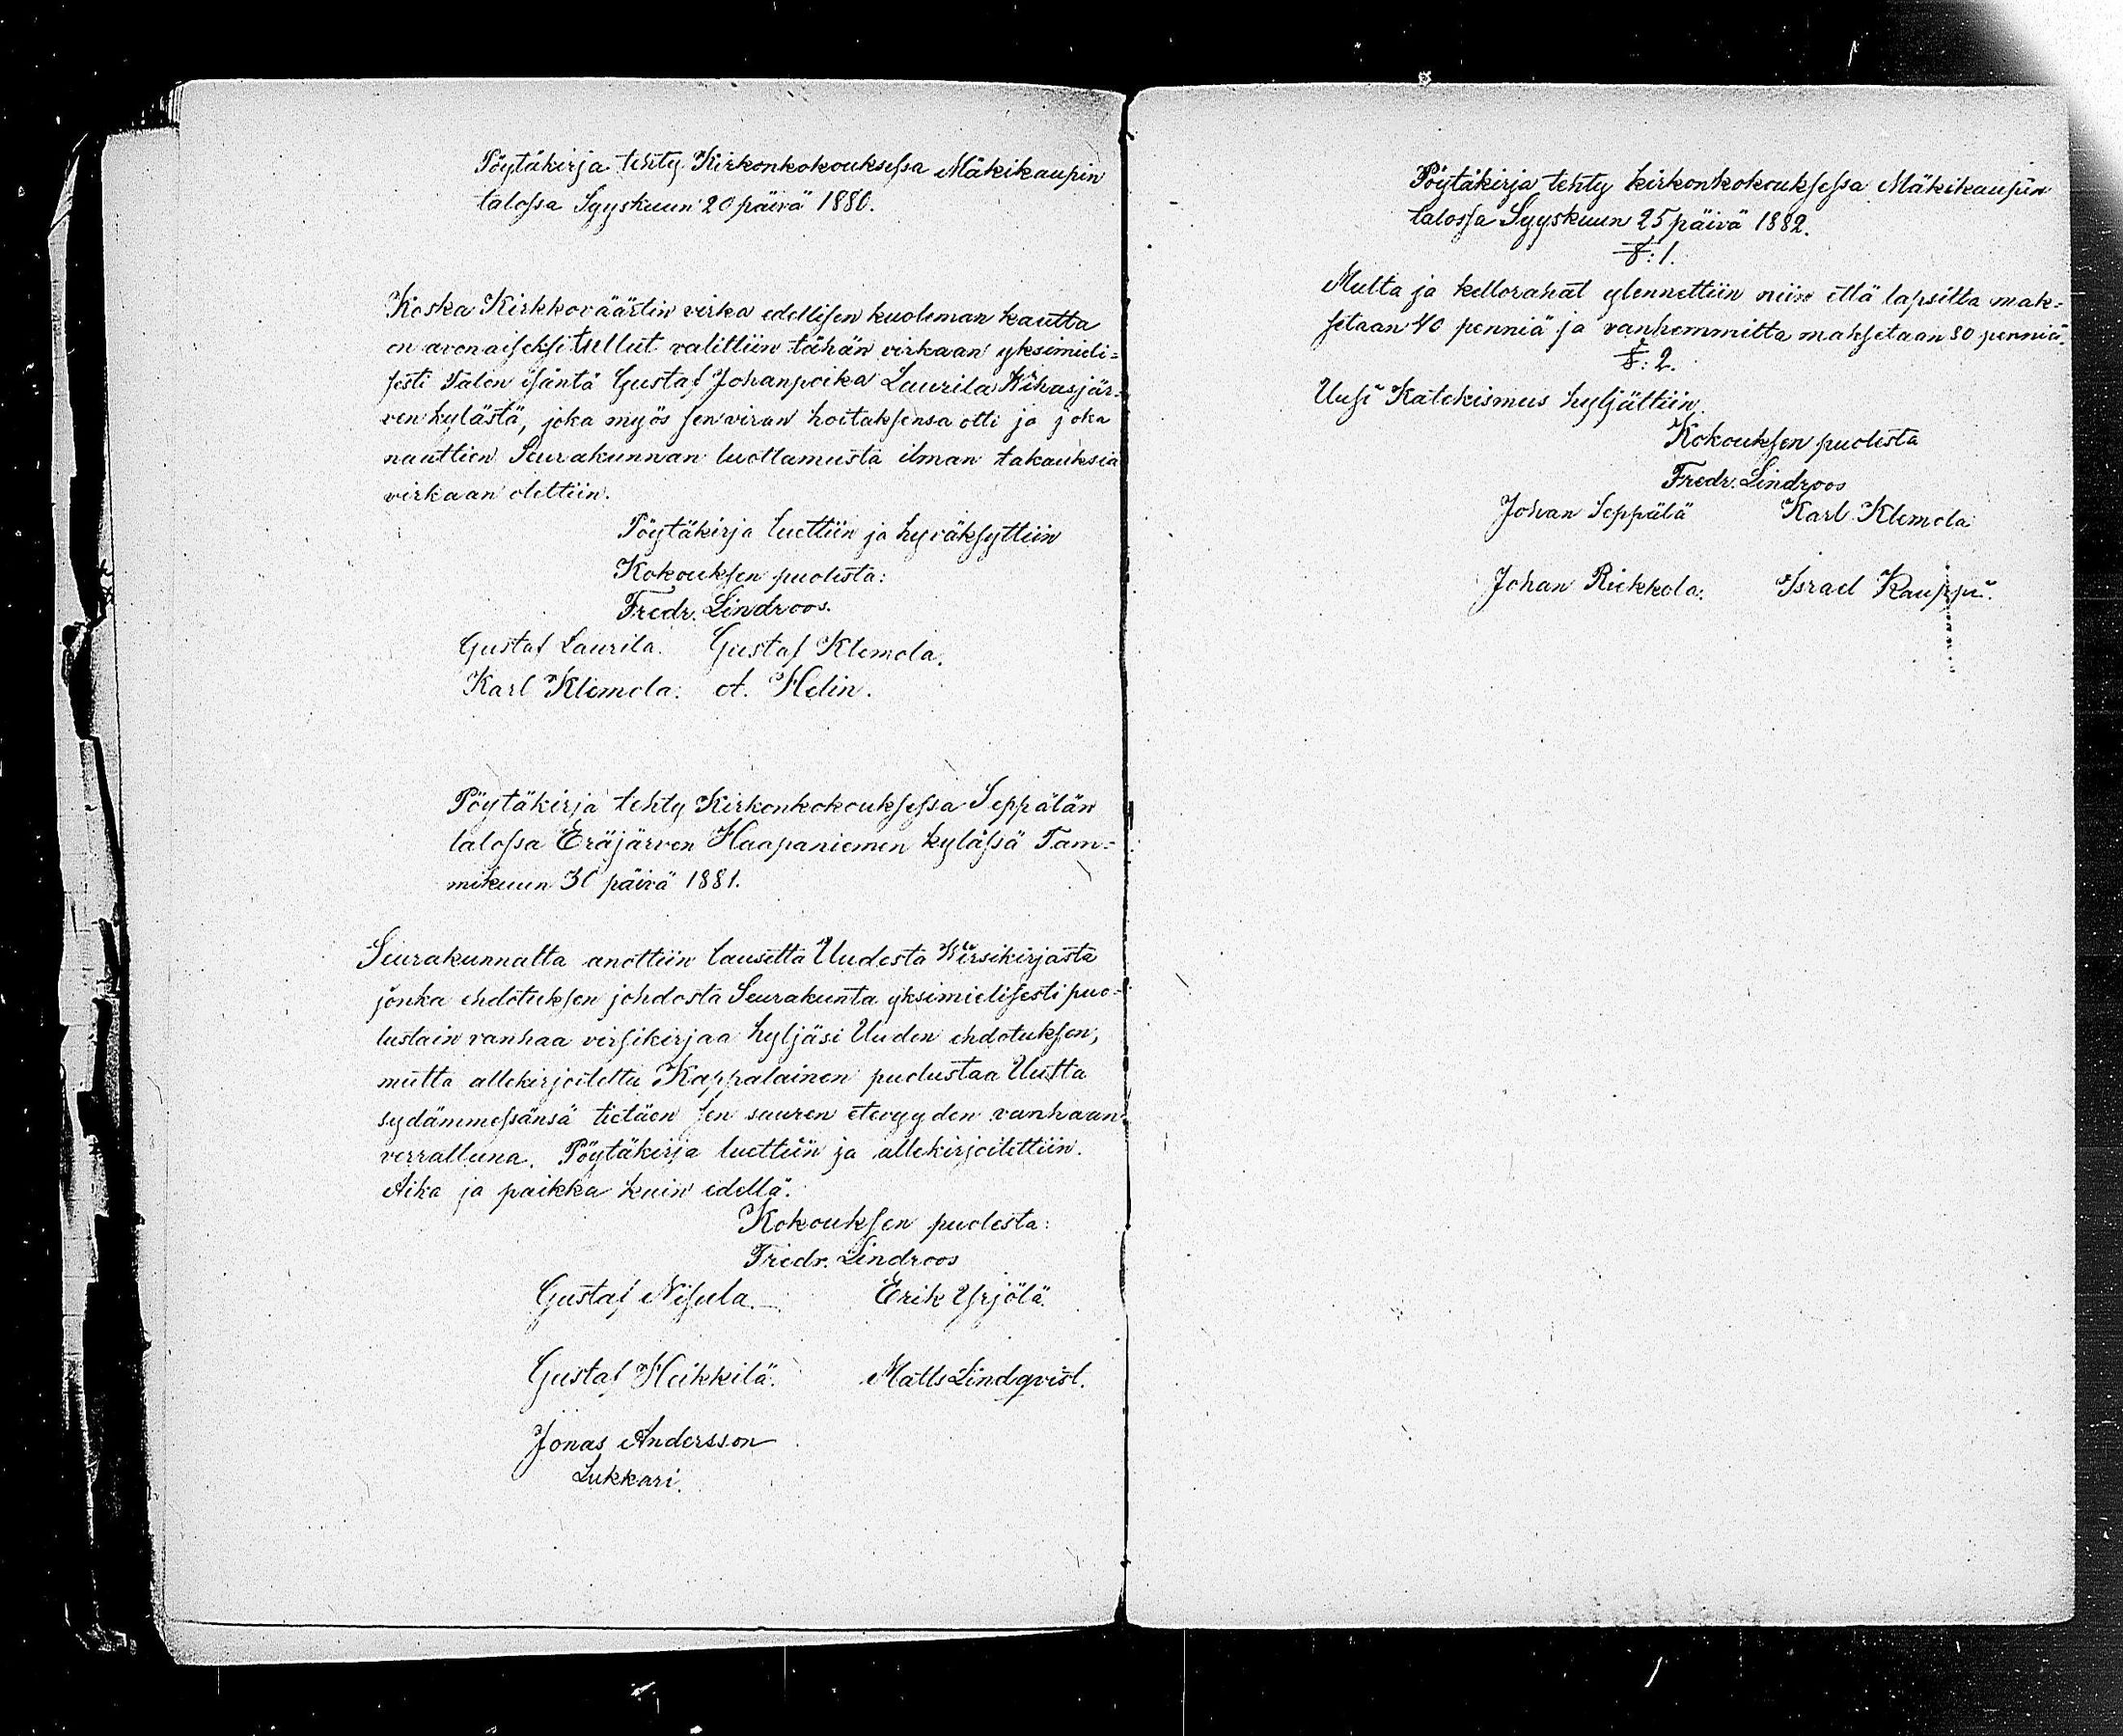 Pöytäkirja tehty Kirkonkokouksessa Mäkikaupin
talossa Syyskuun 20 päivä 1880.
Koska Kirkkoväärtin virka edellisen kuoleman kautta
on avonaiseksi tullut valittiin tähän virkaan yksimieli=
sesti Talon isäntä Gustaf Johanpoika Laurila Wihasjär=
ven kylästä, joka myös sen viran hoitaksensa otti ja joka
nauttien Seurakunnan luottamusta ilman takauksia
virkaan otettiin.
Pöytäkirja luettiin ja hyväksyttiin
Kokouksen puolesta:
Fredr. Lindroos.
Gustaf Laurila. Gustaf Klemola.
Karl Klemola. A. Helin.
Pöytäkirja tehty Kirkonkokouksessa Seppälän
talossa Eräjärven Haapaniemen kylässä Tam=
mikuun 30 päivä 1881.
Seurakunnalta anottiin lausetta Uudesta Wirsikirjasta
jonka ehdotuksen johdosta Seurakunta yksimielisesti puo=
lustain vanhaa virsikirjaa hyljäsi Uuden ehdotuksen,
mutta allekirjoitettu Kappalainen puolustaa Uutta
sydämmessänsä tietäen sen suuren etevyyden vanhaan
verralluna. Pöytäkirja luettiin ja allekirjoitettiin.
Aika ja paikka kuin edellä.
Kokouksen puolesta:
Fredr. Lindroos
Gustaf Nisula. Erik Yrjölä.
Gustaf Heikkilä. Matts Lindqvist.
Jonas Andersson
Lukkari.
Pöytäkirja tehty kirkonkokouksessa Mäkikaupin
talossa Syyskuun 25 päivä 1882.
§: 1.
Multa ja kellorahat ylennettiin niin että lapsilta mak=
setaan 40 penniä ja vanhemmilta maksetaan 80 penniä.
§: 2.
Uusi Katekismus hyljättiin.
Kokouksen puolesta
Fredr. Lindroos
Johan Seppälä Karl Klemola
Johan Riekkola. Israel Kauppi.